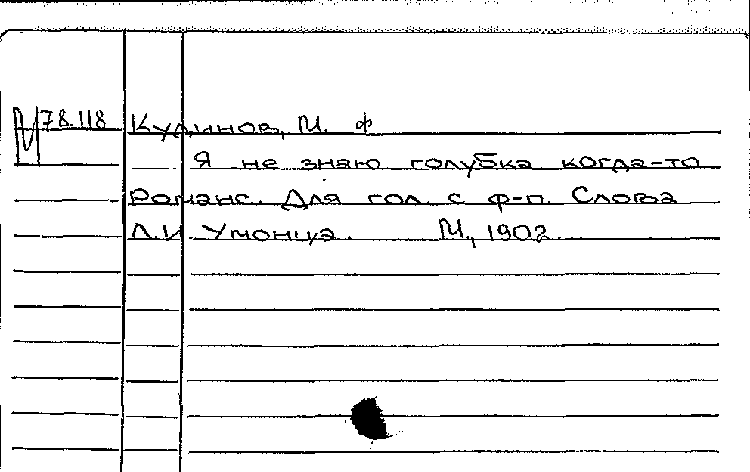 М 78.118 Кудинов, М. Ф
Я не знаю голубка когда-то
Романс. Для гол. с ф-п. Слова
Л.И Умонца. М., 1902.